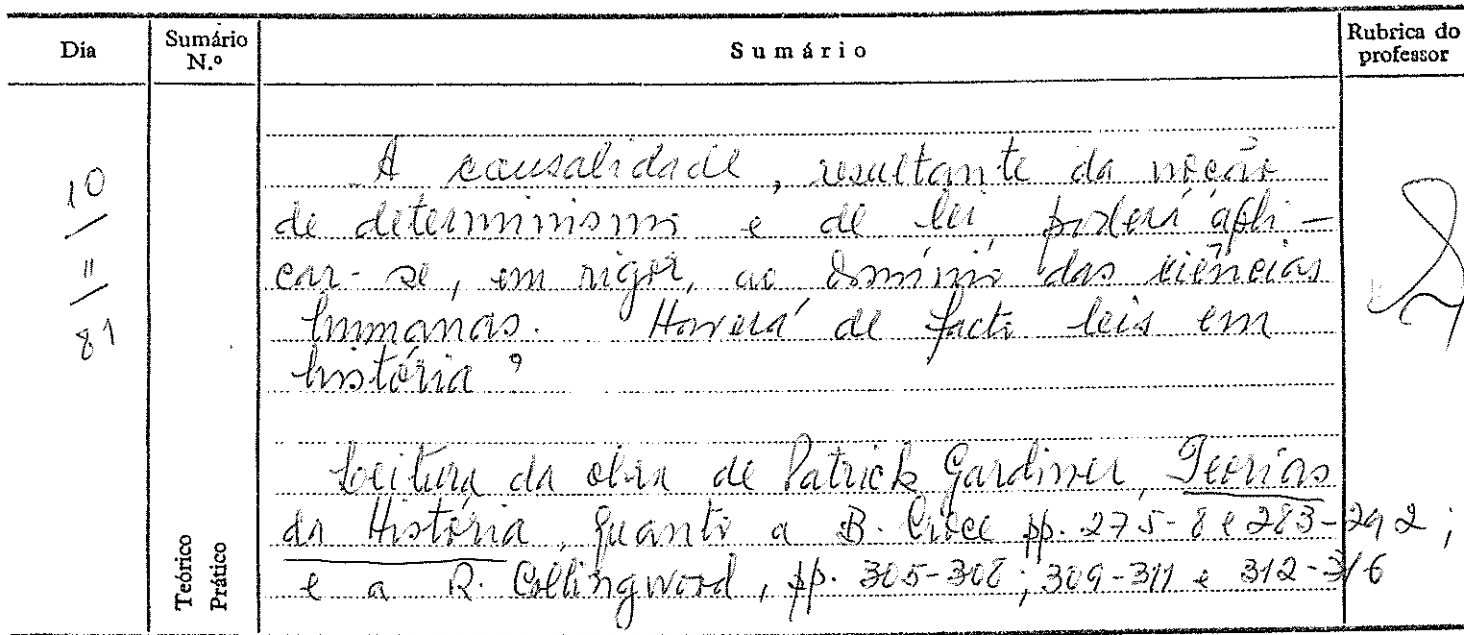 Dia
Sumário N.º
Sumário
Rubrica do professor
10
11
81
A causalidade, resultante da noção
de determinismo e de lei, poderá apli-
car-se, em rigor, ao domínio das ciências
humanas. Haverá de facto leis em
história?
Leitura da obra de Patrick Gardiner, Teorias
da História, quanto a B. Croce pp. 275-8 e 283-292;
e a R. Collingwood, pp. 305-308; 309-311 e 312-316
Teórico
Prático